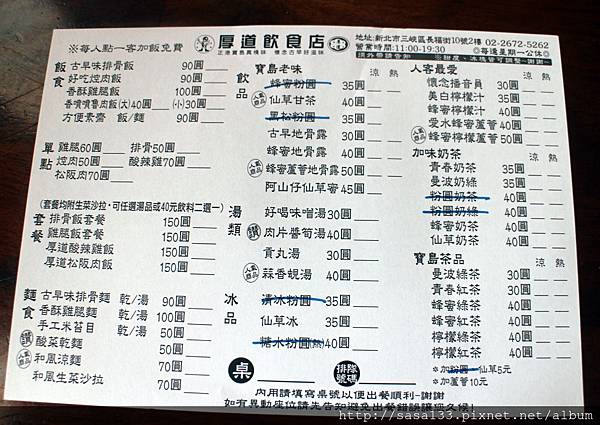 ※每人點一客加飯免費
厚道飲食店
正港寶島真情味 懷念古早好滋味
地址:新北市三峽區長福街10號2樓 02-2672-5262
營業時間:11:00-19:30 ◎每逢星期一公休◎
須外帶請告知 ※甜度、冰塊皆可調整~謝謝~
飯食
古早味排骨飯 90圓
好吃焢肉飯 90圓
香酥雞腿飯 90圓
香噴噴魯肉飯(大)40圓 (小)30圓
方便素齋 飯/麵 90圓
單點
雞腿60圓 排骨50圓
焢肉50圓 酸辣雞70圓
松阪肉70圓
(套餐均附生菜沙拉,可任選湯品或40元飲料二選一)
套餐
排骨飯套餐 150圓
雞腿飯套餐 150圓
厚道酸辣雞飯 150圓
厚道松阪肉飯 150圓
麵食
古早味排骨麵 乾/湯 90圓
香酥雞腿麵 乾/湯 100圓
手工米苔目 乾/湯 50圓
讚 酸菜乾麵 50圓
人氣商品 和風涼麵 70圓
和風生菜沙拉 70圓
飲品
寶島老味 涼 熱
蜂蜜粉圓 35圓
人氣商品 仙草甘茶 40圓
黑松粉圓 35圓
古早地骨露 30圓
蜂蜜地骨露 40圓
人氣商品 蜂蜜蘆薈地骨露 50圓
阿山仔仙草蜜 45圓
湯類
好喝味噌湯 30圓
讚 肉片醬筍湯 40圓
貢丸湯 30圓
人氣商品 蒜香蜆湯 40圓
冰品
清冰粉圓 35圓
仙草冰 35圓
糖水粉圓(熱) 40圓
人客最愛 涼 熱
懷念播音員 30圓
美白檸檬汁 35圓
蜂蜜檸檬汁 40圓
愛水蜂蜜蘆薈 40圓
人氣商品 蜂蜜檸檬蘆薈 50圓
加味奶茶 涼 熱
青春奶茶 35圓
曼波奶綠 35圓
粉圓奶茶 40圓
粉圓奶綠 40圓
蜂蜜奶茶 40圓
仙草奶茶 40圓
寶島茶品 涼 熱
曼波綠茶 30圓
青春紅茶 30圓
蜂蜜綠茶 40圓
蜂蜜紅茶 40圓
檸檬綠茶 40圓
檸檬紅茶 40圓
※加粉圓、仙草5元
※加蘆薈10元
桌
排隊號碼
內用請填寫桌號以便出餐順利~謝謝
如有異動座位請先告知避免出餐錯誤讓您久候!
http://sasa133.pixnet.net/album